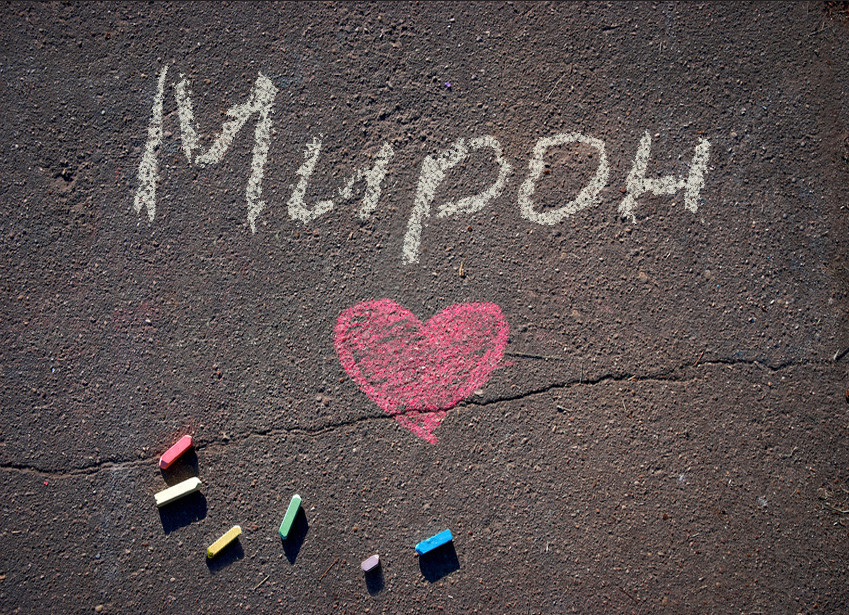 Мирон